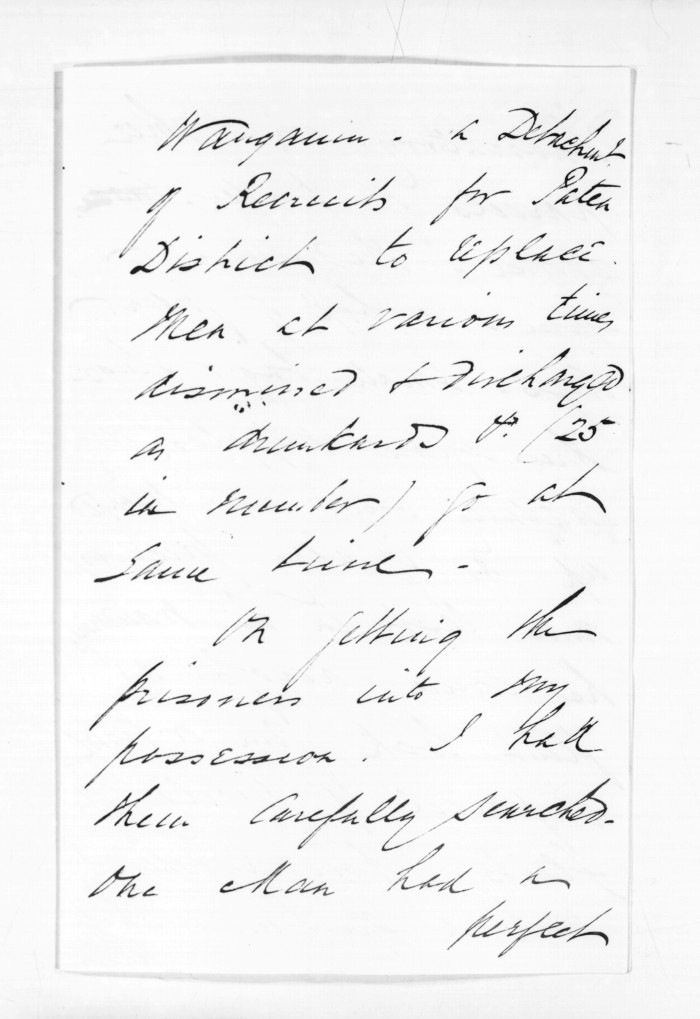 Wanganui - a Detachmt
of Recruits for Patea
District to replace
men at various times
dismissed & discharged
as drunkards &. (25
in number) go at
same time -
On getting the
prisoners into my
possession. I had
them carefully searched -
One Man had a
perfect